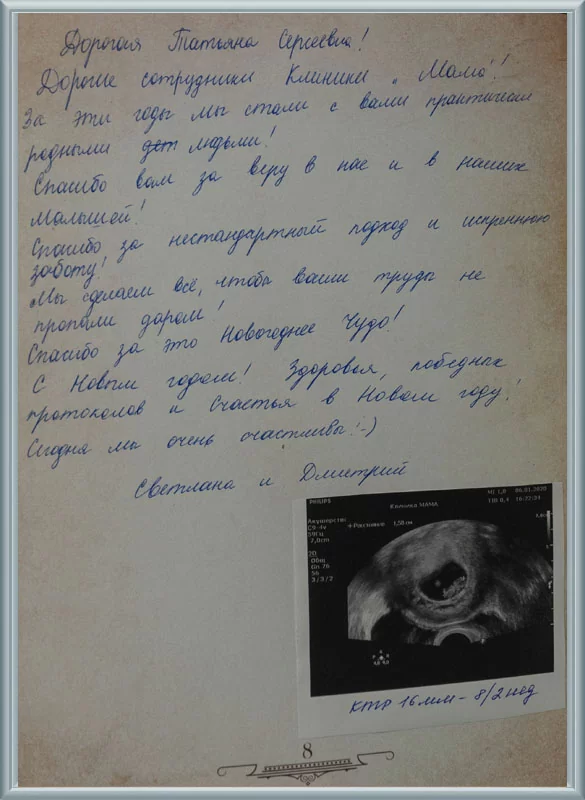 Дорогая Татьяна Сергеевна!
Дорогие сотрудники Клиники „Мама"!
За эти годы мы стали с вами практически
родными дет людьми!
Спасибо вам за веру в нас и в наших
малышей!
Спасибо за нестандартный подход и искреннюю
заботу!
Мы сделаем всё, чтобы ваши труды не
пропали даром!
Спасибо за это Новогоднее Чудо!
С Новым годом! Здоровья, победных
протоколов и Счастья в Новом году!
Сегодня мы очень счастливы!:-)
Светлана и Дмитрий
PHILIPS
Клиника МАМА
MI 1,0 06.01.2020
TIB 0,4 16:22:24
Акушерство
C9-4v
59Гц
7,0cm
+ Расстояние 1,50 см
2D
Общ
Gn 76
56
3/3/2
КТР 16мм - 8/2 нед
8